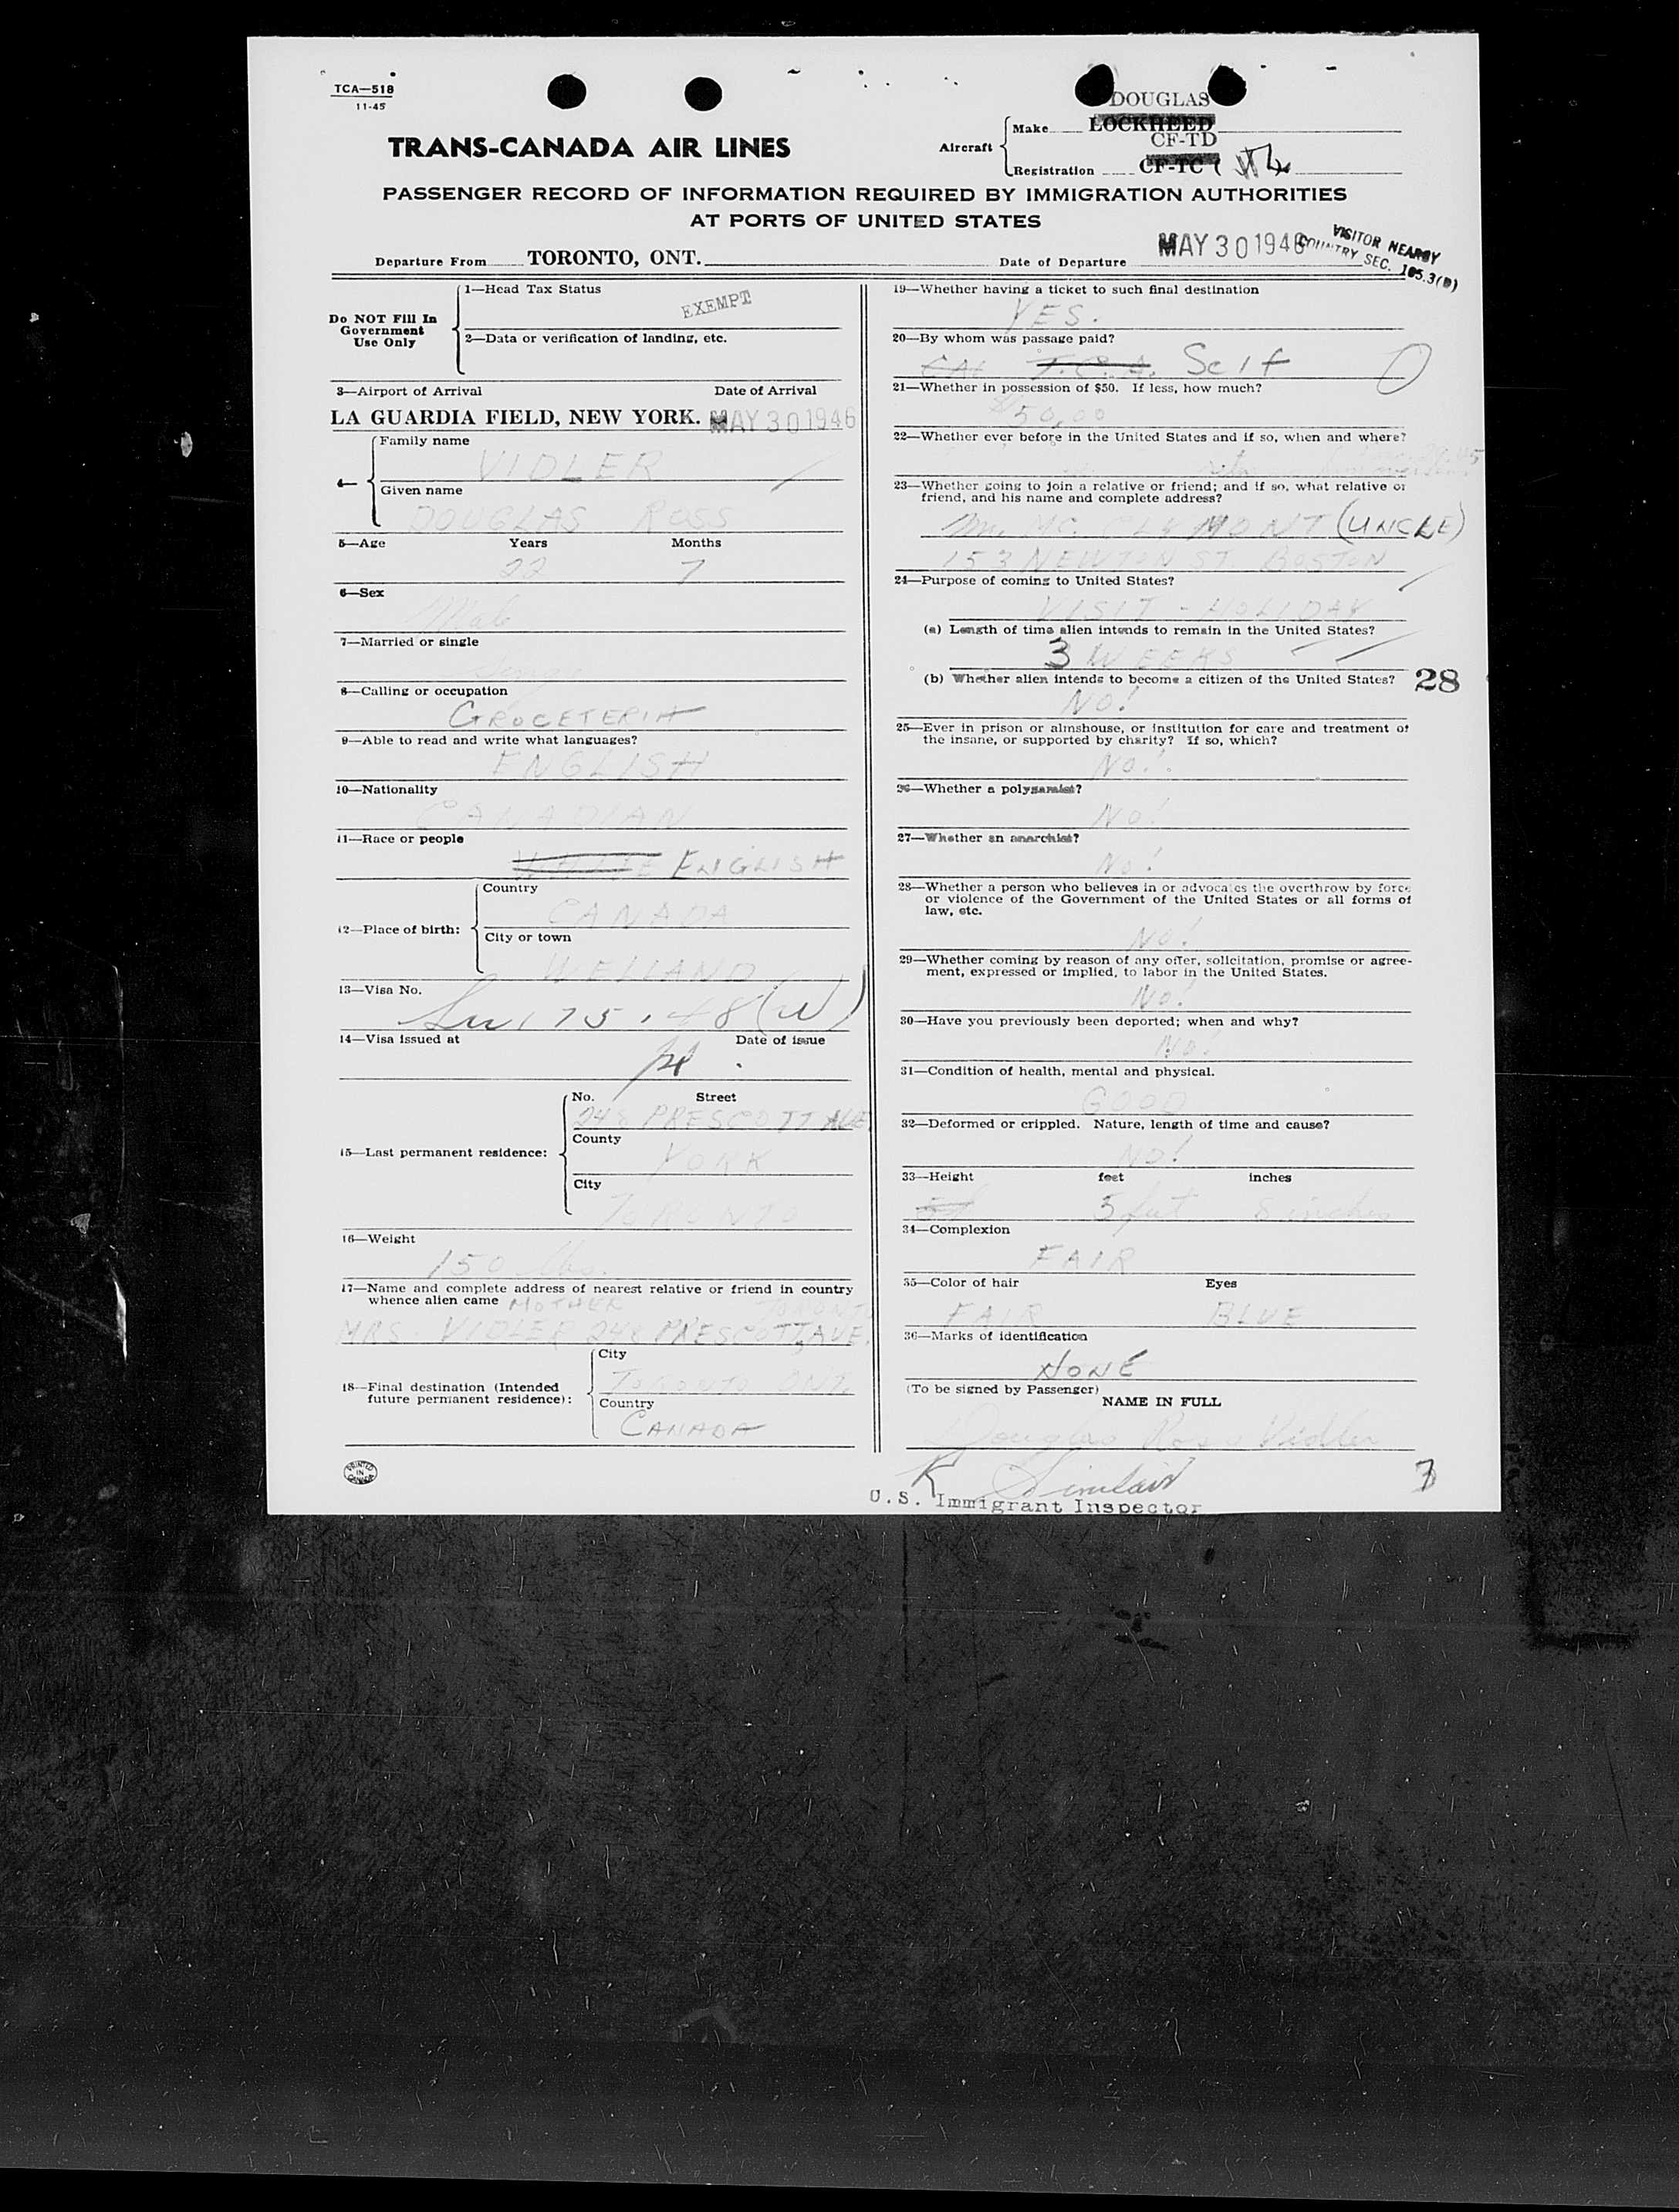 TCA—518
11-45
DOUGLAS
Aircraft Make LOCKHEED
CF-TD
Registration CF-TC
TRANS-CANADA AIR LINES
PASSENGER RECORD OF INFORMATION REQUIRED BY IMMIGRATION AUTHORITIES
AT PORTS OF UNITED STATES
Departure From TORONTO, ONT. Date of Departure MAY 30 1946
VISITOR NEARBY
COUNTRY SEC. 105.3(B)
Do NOT Fill In
Government
Use Only
1—Head Tax Status
EXEMPT
2—Data or verification of landing, etc.
3—Airport of Arrival Date of Arrival
LA GUARDIA FIELD, NEW YORK. MAY 30 1946
4—
Family name
VIDLER
Given name
DOUGLAS ROSS
5—Age Years Months
22 7
6—Sex
Male
7—Married or single
8—Calling or occupation
GROCETERIA
9—Able to read and write what languages?
ENGLISH
10—Nationality
CANADIAN
11—Race or people
WHITE ENGLISH
12—Place of birth:
Country
CANADA
City or town
WELLAND
13—Visa No.
175.48 (W)
14—Visa issued at Date of issue
15—Last permanent residence:
No. Street
248 PRESCOTT AVE
County
YORK
City
TORONTO
16—Weight
150 lbs.
17—Name and complete address of nearest relative or friend in country
whence alien came MOTHER TORONTO
MRS VIDLER 248 PRESCOTT AVE.
18—Final destination (Intended
future permanent residence):
City
TORONTO ONT.
Country
CANADA
PRINTED
IN
CANADA
19—Whether having a ticket to such final destination
YES.
20—By whom was passage paid?
T.C.A. Self
21—Whether in possession of $50. If less, how much?
$50.00
22—Whether ever before in the United States and if so, when and where?
23—Whether going to join a relative or friend; and if so, what relative or
friend, and his name and complete address?
MONT (UNCLE)
153 NEWTON ST. BOSTON
24—Purpose of coming to United States?
VISIT - HOLIDAY
(a) Length of time alien intends to remain in the United States?
3 WEEKS
(b) Whether alien intends to become a citizen of the United States?
28
NO!
25—Ever in prison or almshouse, or institution for care and treatment of
the insane, or supported by charity? If so, which?
NO!
26—Whether a polygamist?
NO!
27—Whether an anarchist?
NO!
28—Whether a person who believes in or advocates the overthrow by force
or violence of the Government of the United States or all forms of
law, etc.
NO!
29—Whether coming by reason of any offer, solicitation, promise or agree-
ment, expressed or implied, to labor in the United States.
NO!
30—Have you previously been deported; when and why?
NO!
31—Condition of health, mental and physical.
GOOD
32—Deformed or crippled. Nature, length of time and cause?
NO!
33—Height feet inches
5 feet 8 inches
34—Complexion
FAIR
35—Color of hair Eyes
FAIR BLUE
36—Marks of identification
NONE
(To be signed by Passenger)
NAME IN FULL
Douglas Ross Vidler
Sinclair
U.S. Immigrant Inspector